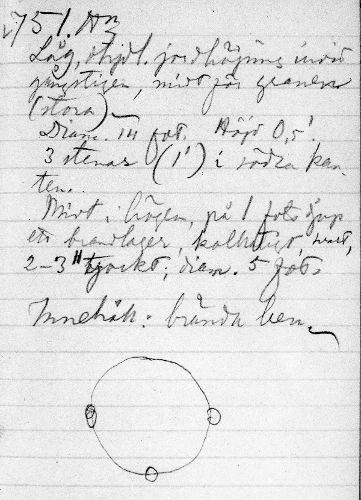 751. A3
Låg, otydl. jordhögning invid
gångstigen, midt för granen
(stora)
Diam. 14 fot. Höjd 0,5'.
3 stenar (1') i södra kan-
ten.
Midt i högen, på 1 fots djup
ett brandlager, kolhaltigt, svart,
2-3" tjockt; diam. 5 fot.
Innehåll: brända ben.